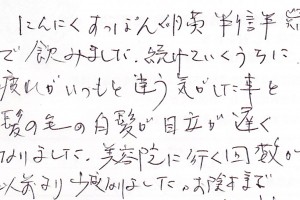 にんにくすっぽん卵黄 半信半
で飲みました。続けていくうちに
疲れがいつもと違う気がした事と
髪の毛の白髪が目立が遅く
なりました。美容院に行く回数が
以前より少なくなりました。お陰さまで